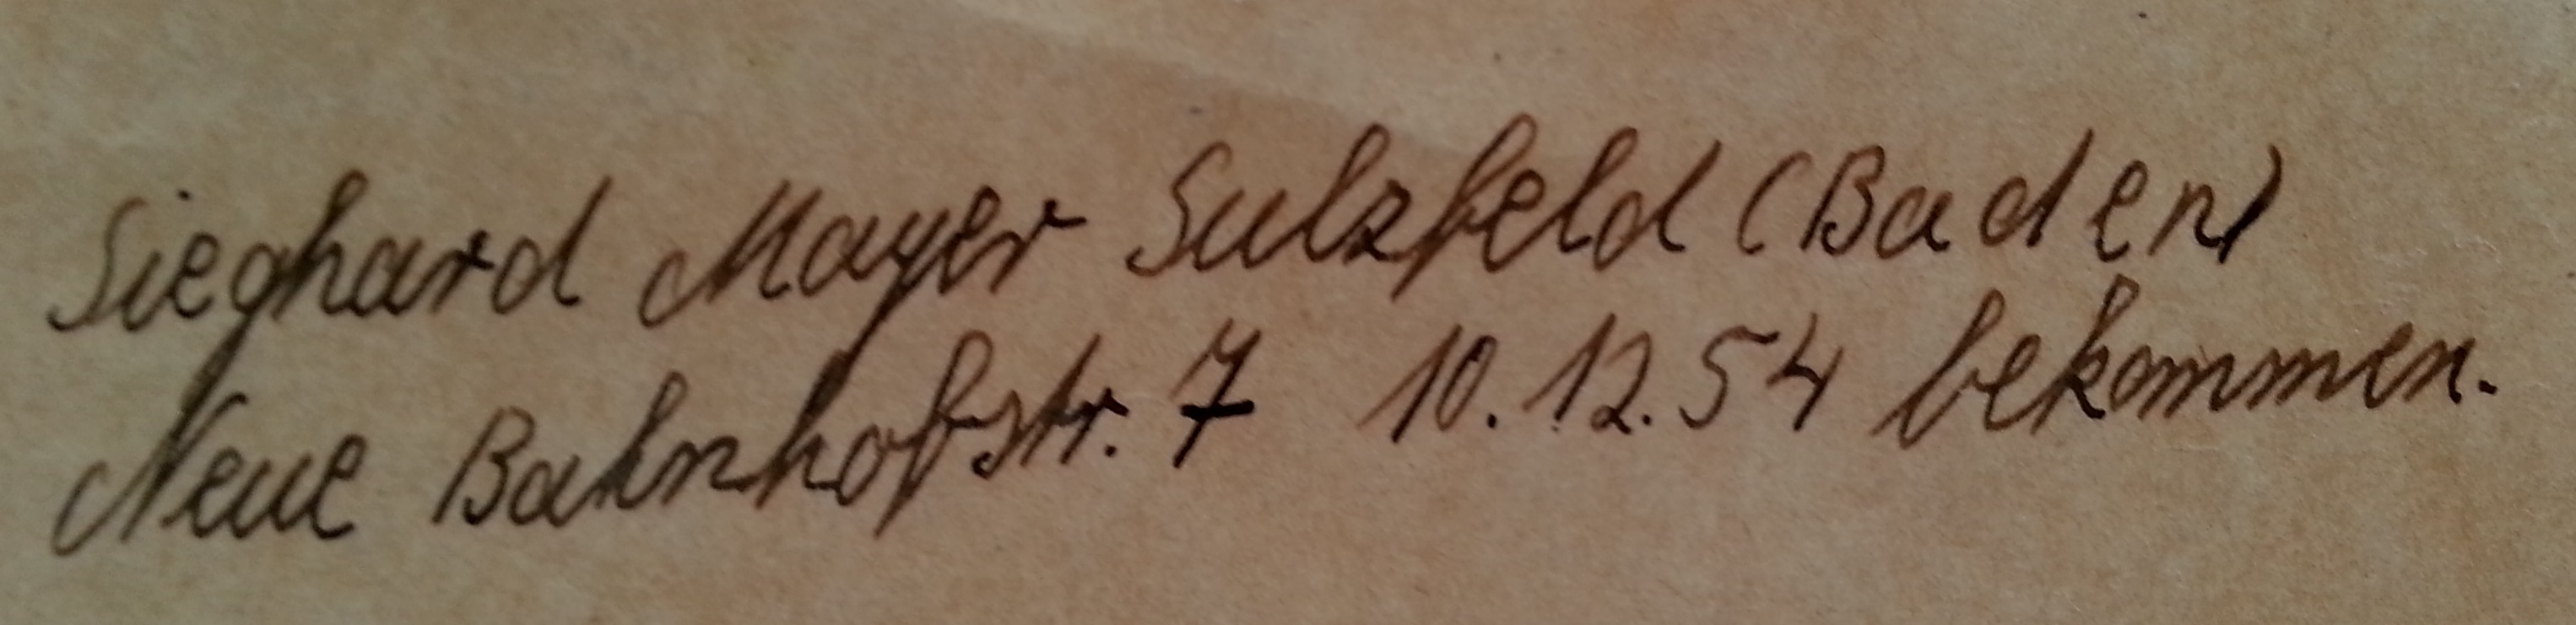 Sieghard Mayer Sulzfeld (Baden)
Neue Bahnhofstr. 7 10.12.54 bekommen.